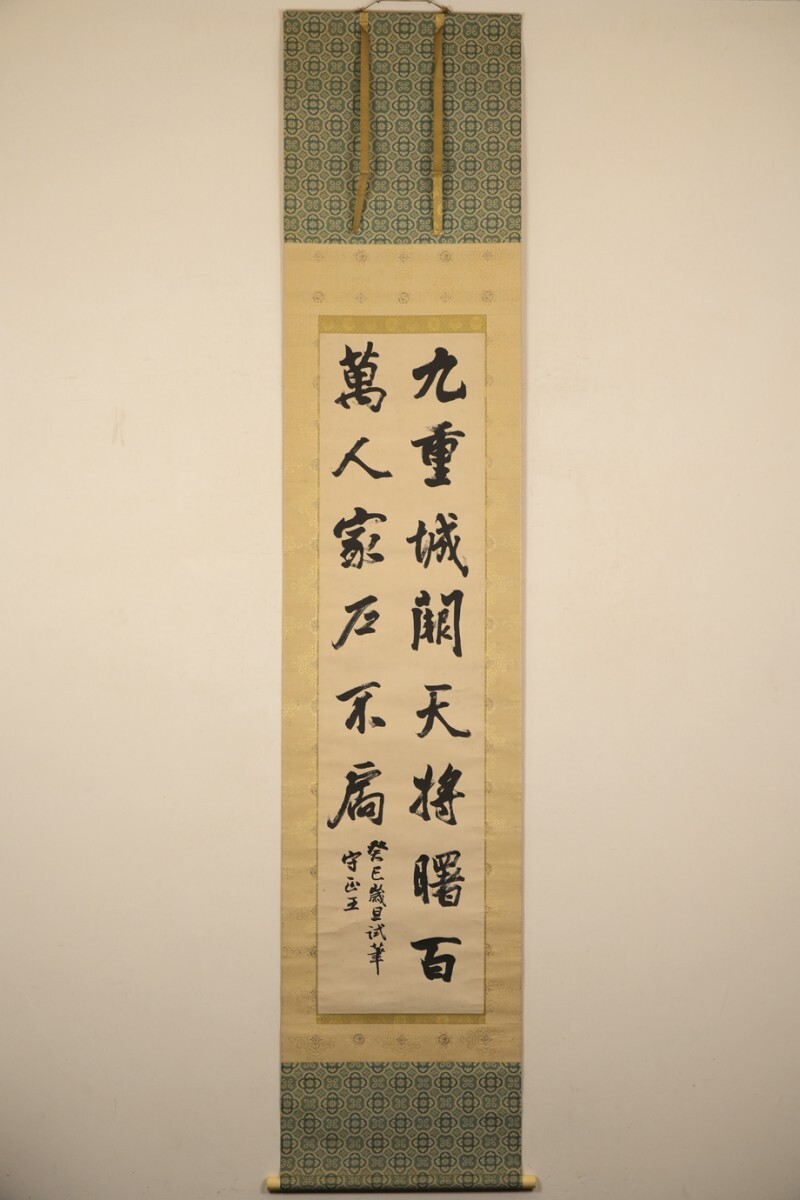 九重城闕天將曙百
萬人家戸不扃
癸巳歳旦試筆
守正王